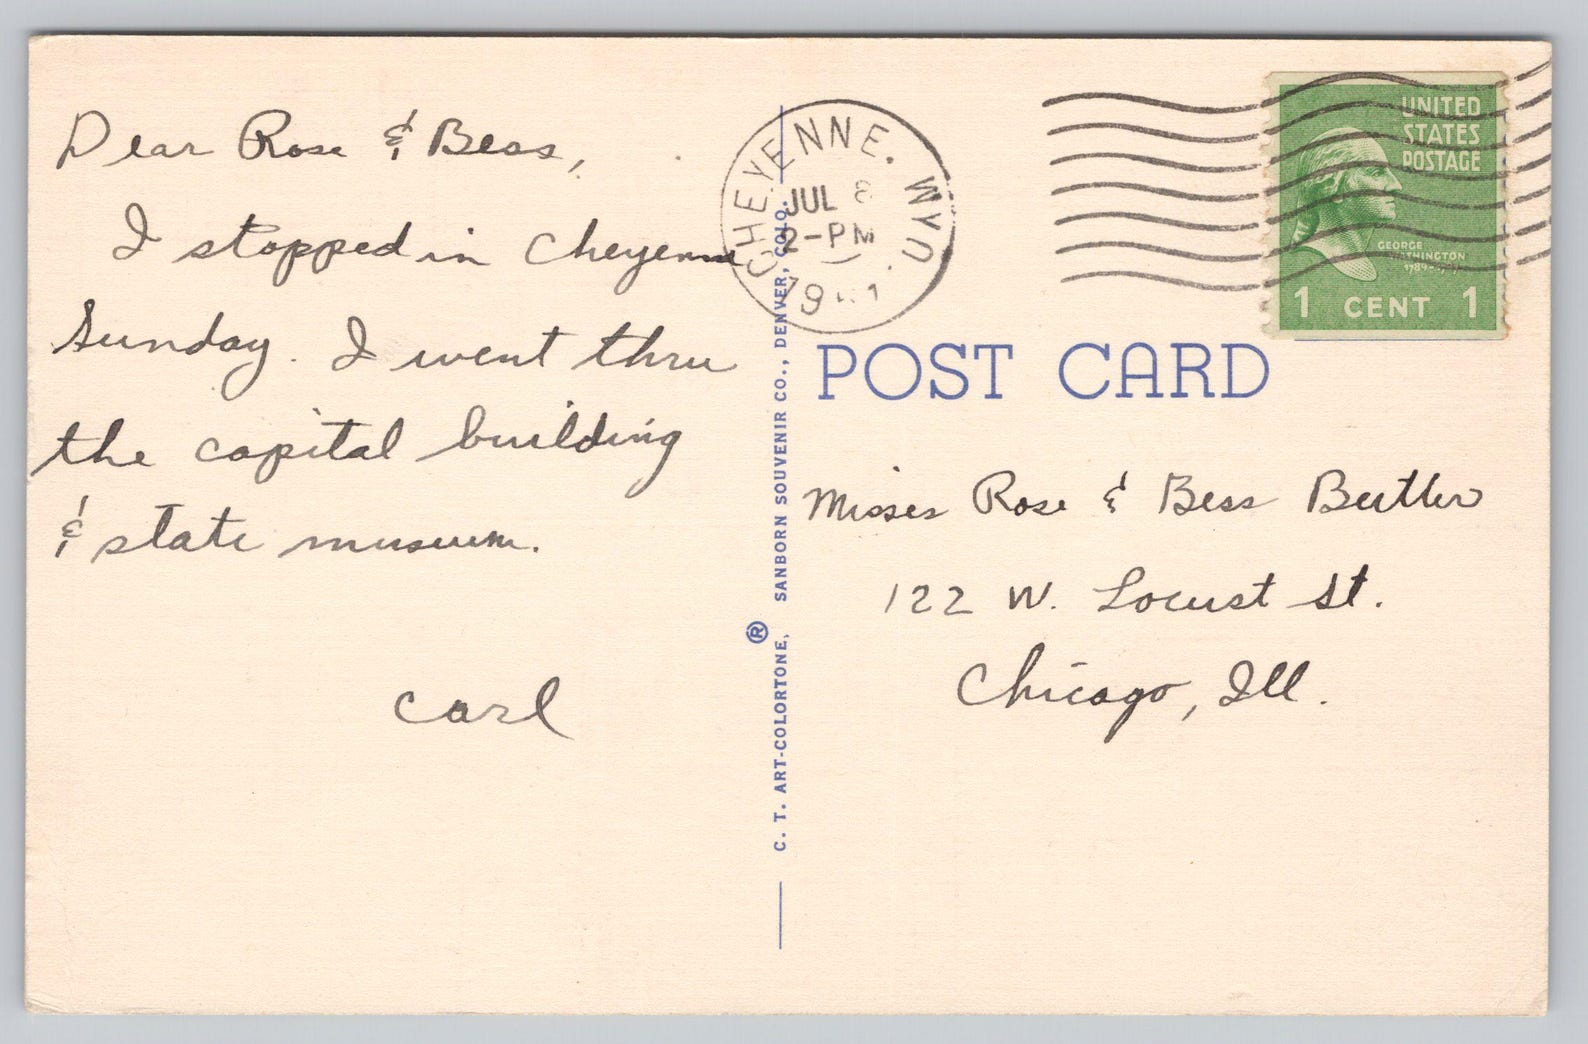 Dear Rose & Bess,
I stopped in Cheyenne
Sunday. I went thru
the capital building
& state museum.
Carl
C. T. ART-COLORTONE, ® SANBORN SOUVENIR CO., DENVER, COLO.
CHEYENNE. WYO.
JUL 8
2-PM
UNITED
STATES
POSTAGE
GEORGE
WASHINGTON
1789-1797
1 CENT 1
POST CARD
Misses Rose & Bess Butler
122 W. Locust St.
Chicago, Ill.